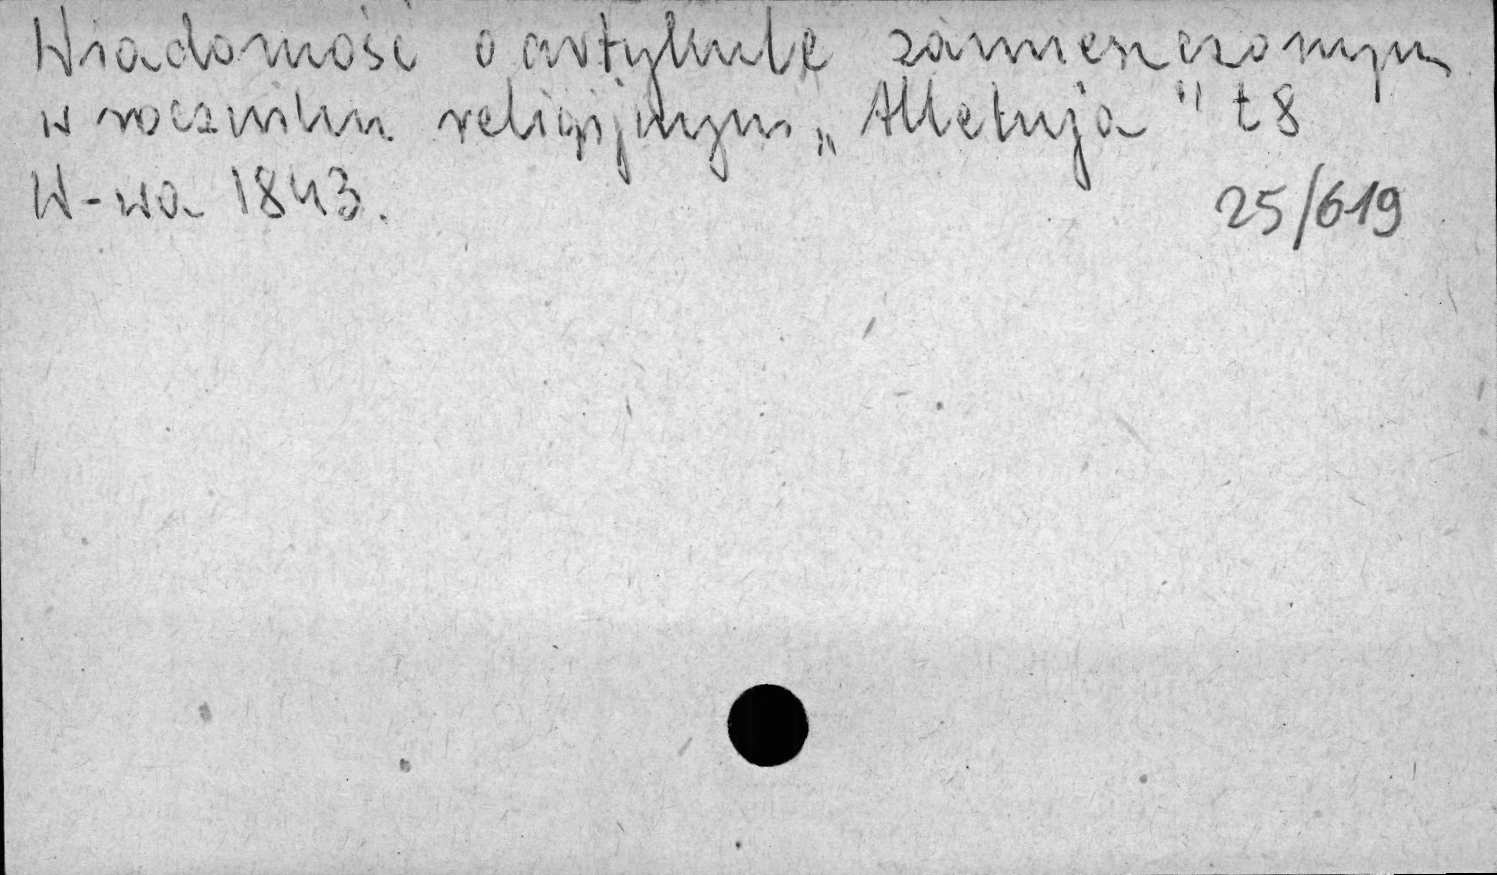 Wiadomość o artykule zamieszczonym
w roczniku religijnym „Alleluja" t 8
W-wa 1843.
25/619